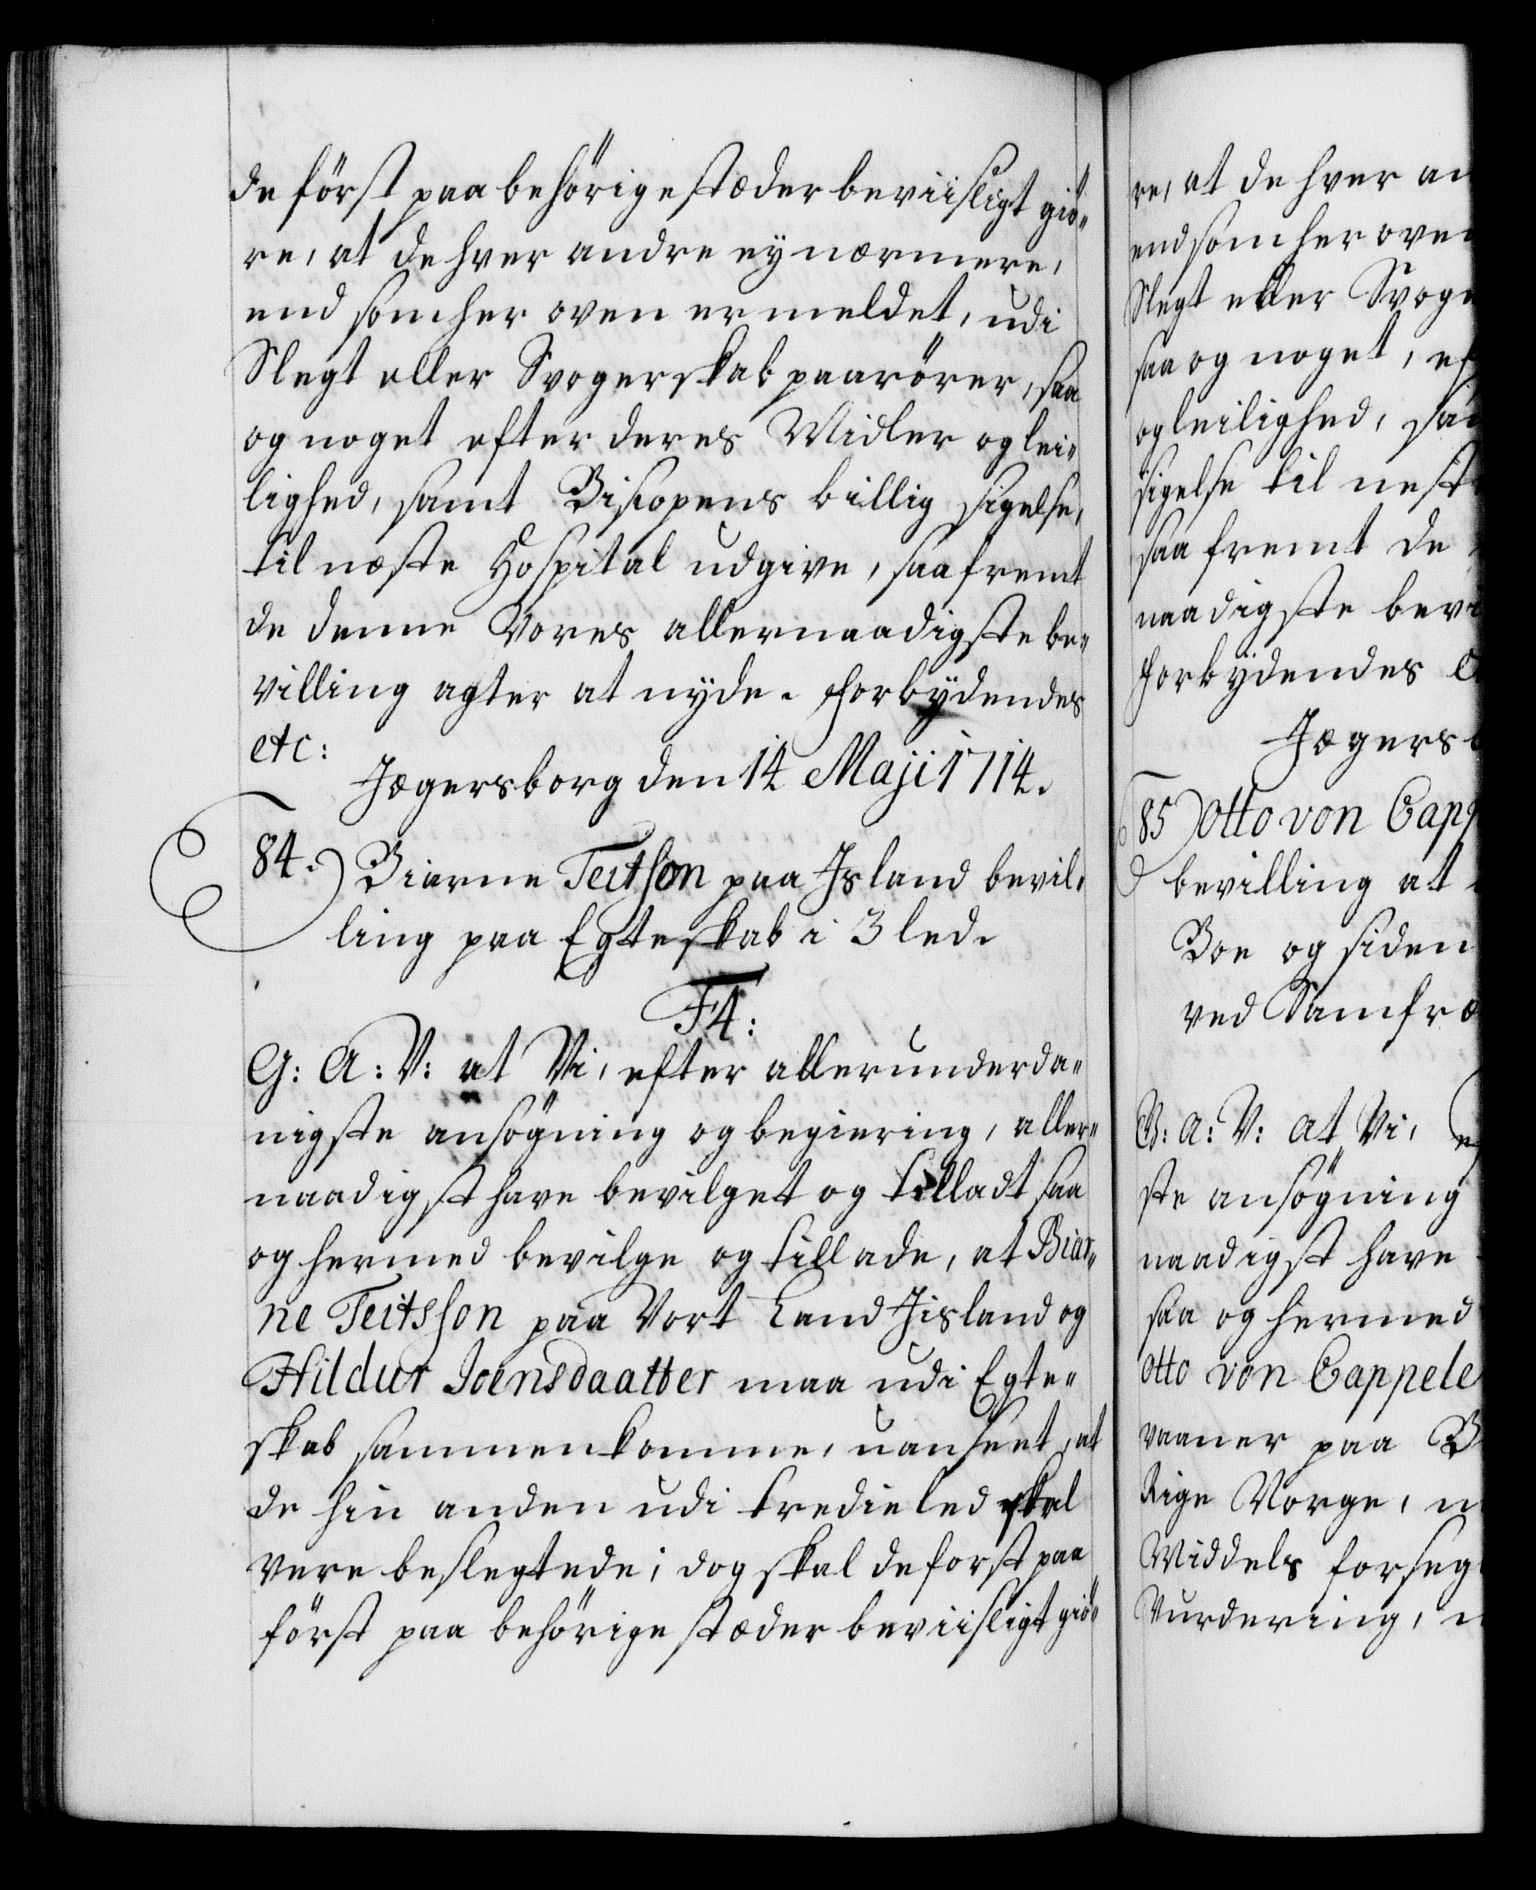 de först paa behörige stæder beviisligt giö-
re, at de hver andre ey nærmere,
end som her oven ermeldet, udi
Slegt eller Svogerskab paarörer, saa
og noget efter deres Midler og lei-
lighed, samt Biscopens billig sigelse,
til næste Hospital udgive, saafremt
de denne Vores allernaadigste be-
villing agter at nyde. Forbydendes
etc:
Jægersborg den 14 Maji 1714.
84.) Biarne Teitsøn paa Island bevil-
ling paa Egteskab i 3 led.
F4:
G: A: V: at Vi, efter allerunderda-
nigste ansögning og begiering, aller-
naadigst have bevilget og tilladt saa
og hermed bevilge og tillade, at Biar-
ne Teitsøn paa Vort Land Jisland og
Hildur Joensdaatter maa udi Egte-
skab sammenkomme, uanseet, at
de hin anden udi tredie led skal
være beslegtede; dog skal de forst paa
först paa behörige stæder beviisligt giö-
re, at de hver an
end som her oven
Slegt eller Svoge
saa og noget, ef
og leilighed, sam
sigelse til nest
saafremt de
naadigste bevi
Forbydendes
Jægersb
85) Otto von Capp
bevilling at
Boe og siden
ved Samfræ
G: A: V: at Vi, ef
ste ansögning
naadigst have
saa og hermed
Otto von Cappele
vaaner paa B
Rige Norge, m
Middels forseg
Vurdering, n